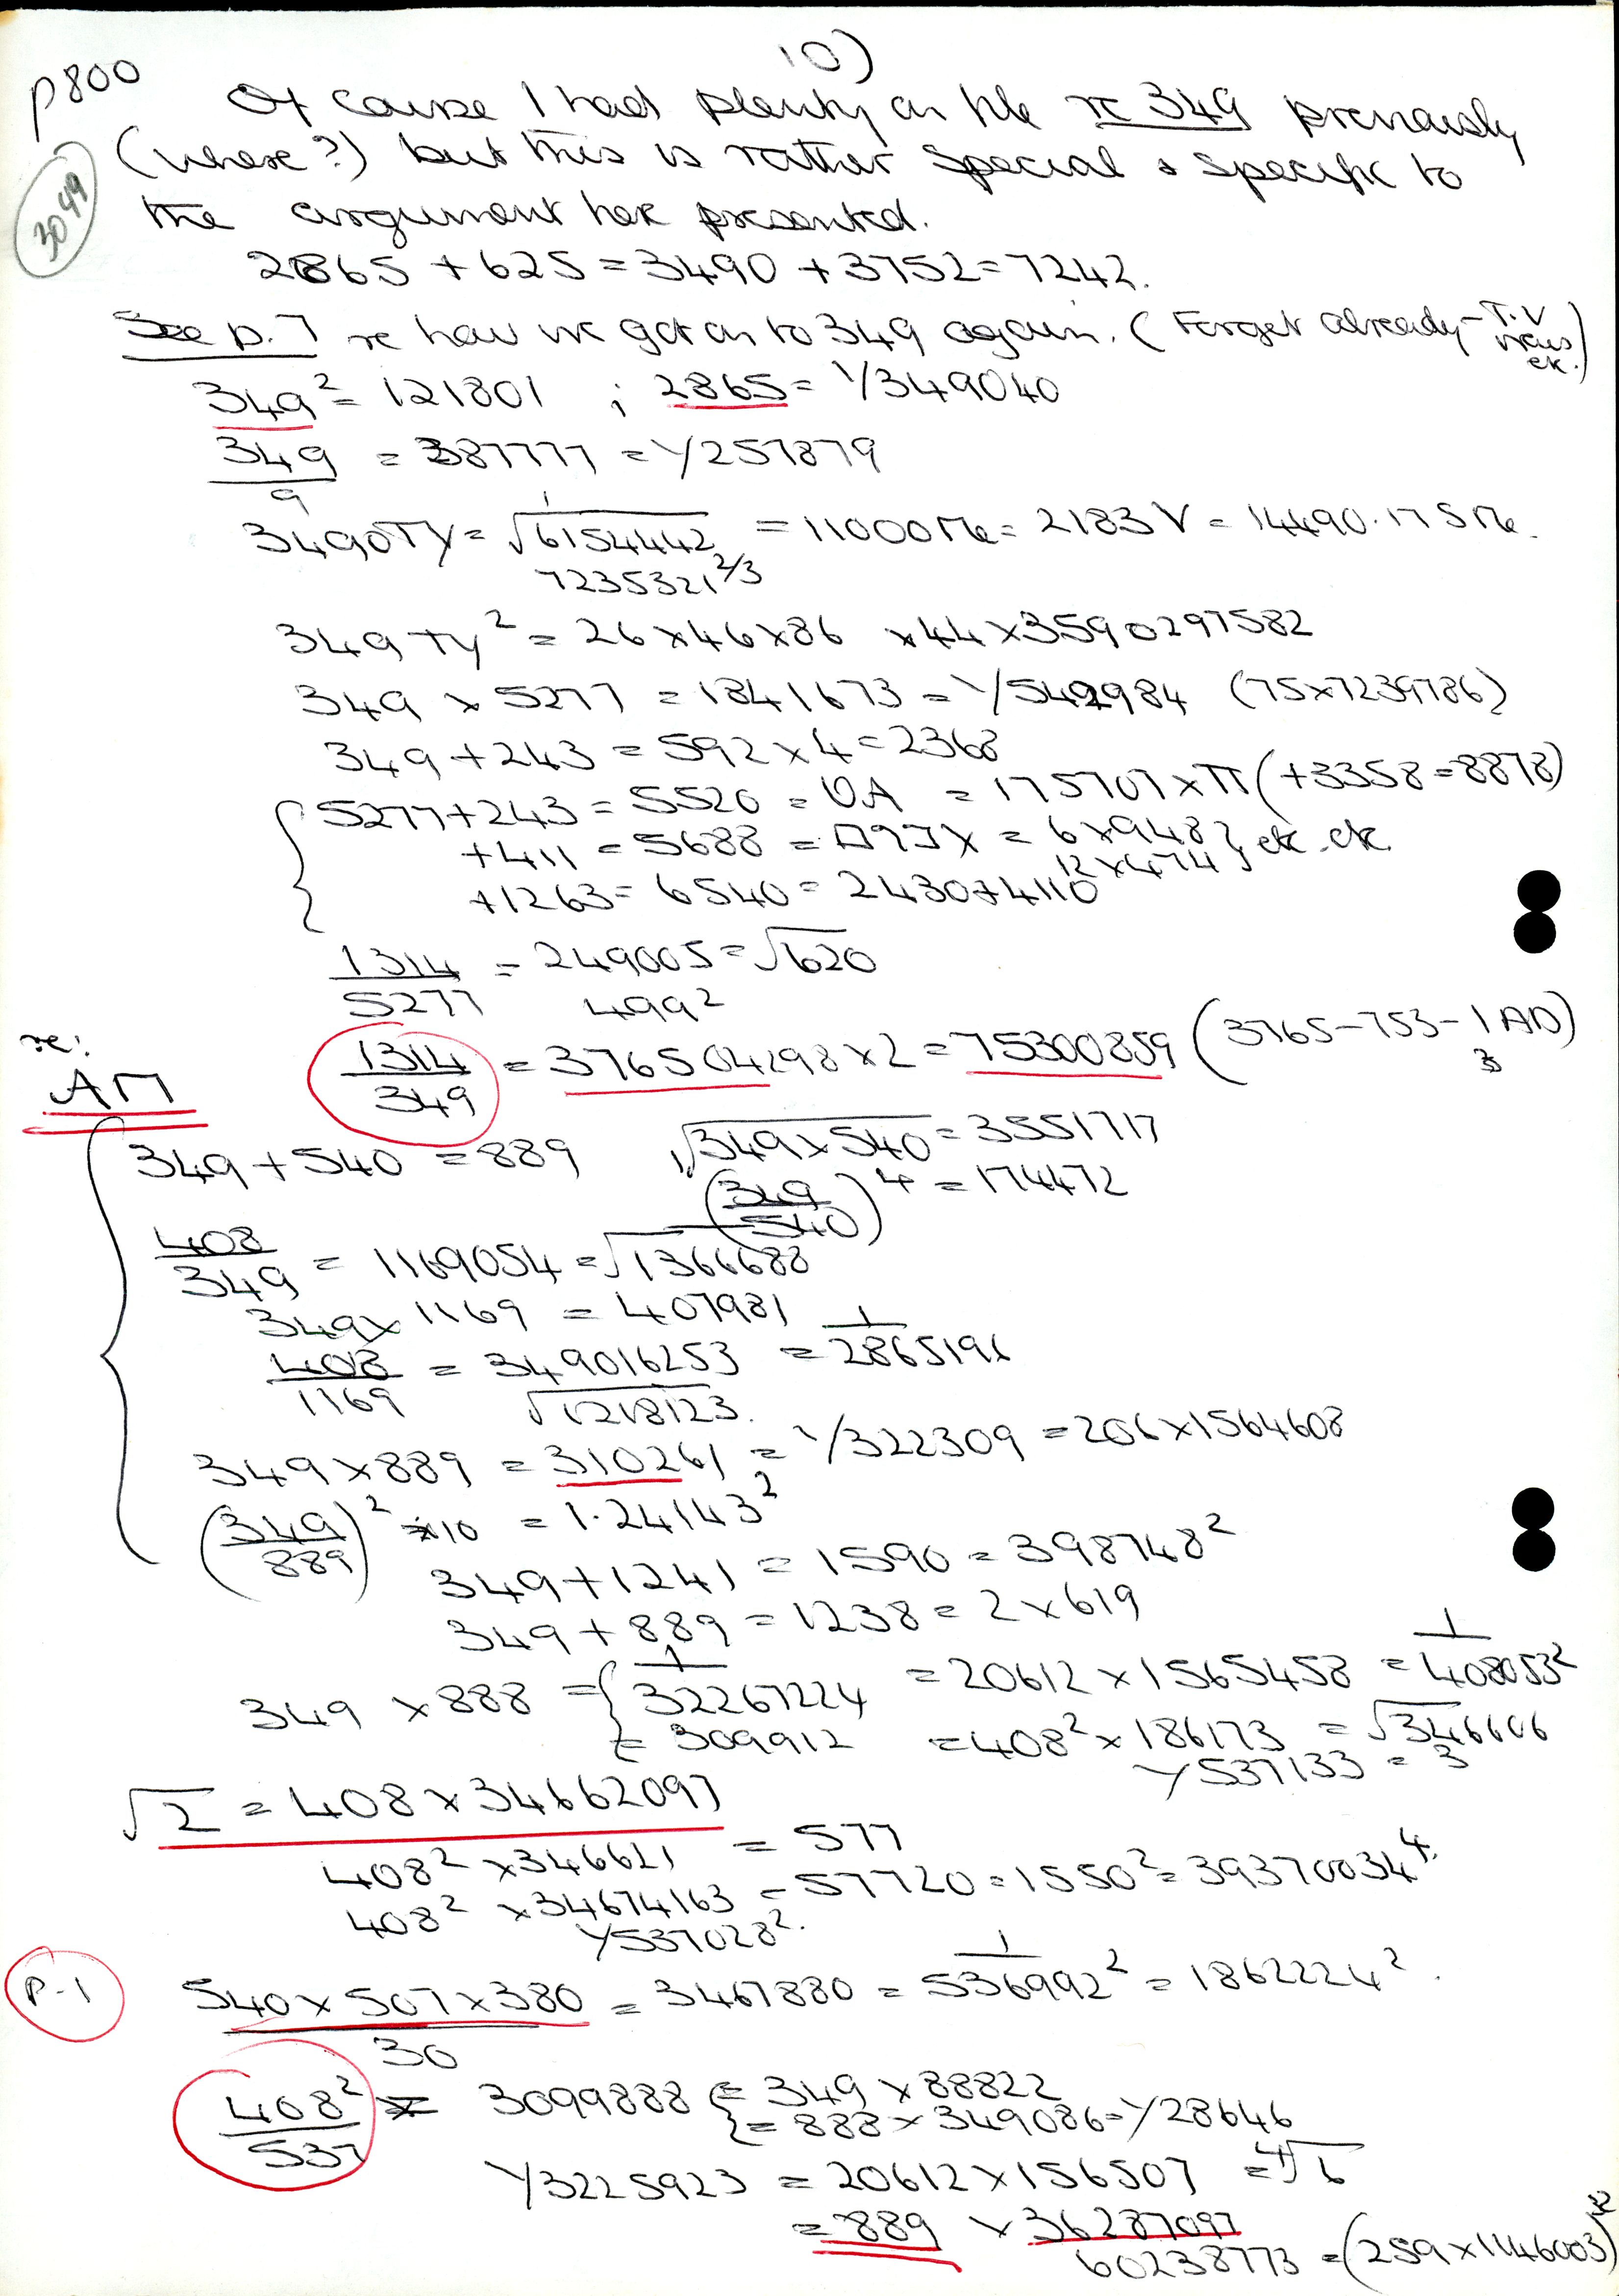 10)
p800
3049
Of course I had plenty on file re 349 previously
(where?) but this is rather special & specific to
the argument here presented.
2865 + 625 = 3490 + 3752 = 7242.
See p.7 re how we got on to 349 again. (Forget already - T.V news etc.)
349² = 121801 ; 2865 = 1/349040
349/9 = 387777 = 1/257879
= √6154442 = 11000 = 2183 V = 14490.175
7235321 2/3
349 TY² = 26 × 46 × 86 × 44 × 3590297582
349 × 5277 = 1841673 = 1/542984 (75×7239786)
349 + 243 = 592 × 4 = 2368
5277 + 243 = 5520 = = 175707 × π (+3358 = 8878)
+411 = 5688 = = 6×948 } etc. etc.
12×474
+1263 = 6540 = 2430+4110
1314/5277 = 249005 = √620
499²
re:
ΑΠ
1314/349 = 376504298 × 2 = 75300859 (3765-753-1AD)
3
349 + 540 = 889 √349×540 = 3551717
(349/540)⁴ = 174472
408/349 = 1169054 = √1366688
349 × 1169 = 407981
408/1169 = 349016253 = 1/2865196
√1218123.
349 × 889 = 310261 = 1/322309 = 206×1564608
(349/889)² ×10 = 1.24143²
349 + 1241 = 1590 = 398748²
349 + 889 = 1238 = 2×619
349 × 888 = { 1/32267224 = 20612 × 1565458 = 1/408053²
= 309912 = 408² × 186173 = √346606
1/537133 = 3
√2 = 408 × 34662097
408² × 346621 = 577
408² × 34674163 = 57720 = 1550² = 39370034⁴.
1/537028².
P-1
540 × 507 × 380/30 = 3467880 = 1/536992² = 1862224².
408²/537 = 3099888 { = 349 × 88822
= 888 × 349086 = 1/28646
1/3225923 = 20612 × 156507 = ⁴√6
= 889 × 36287097
60238773 = (259×1146003)²